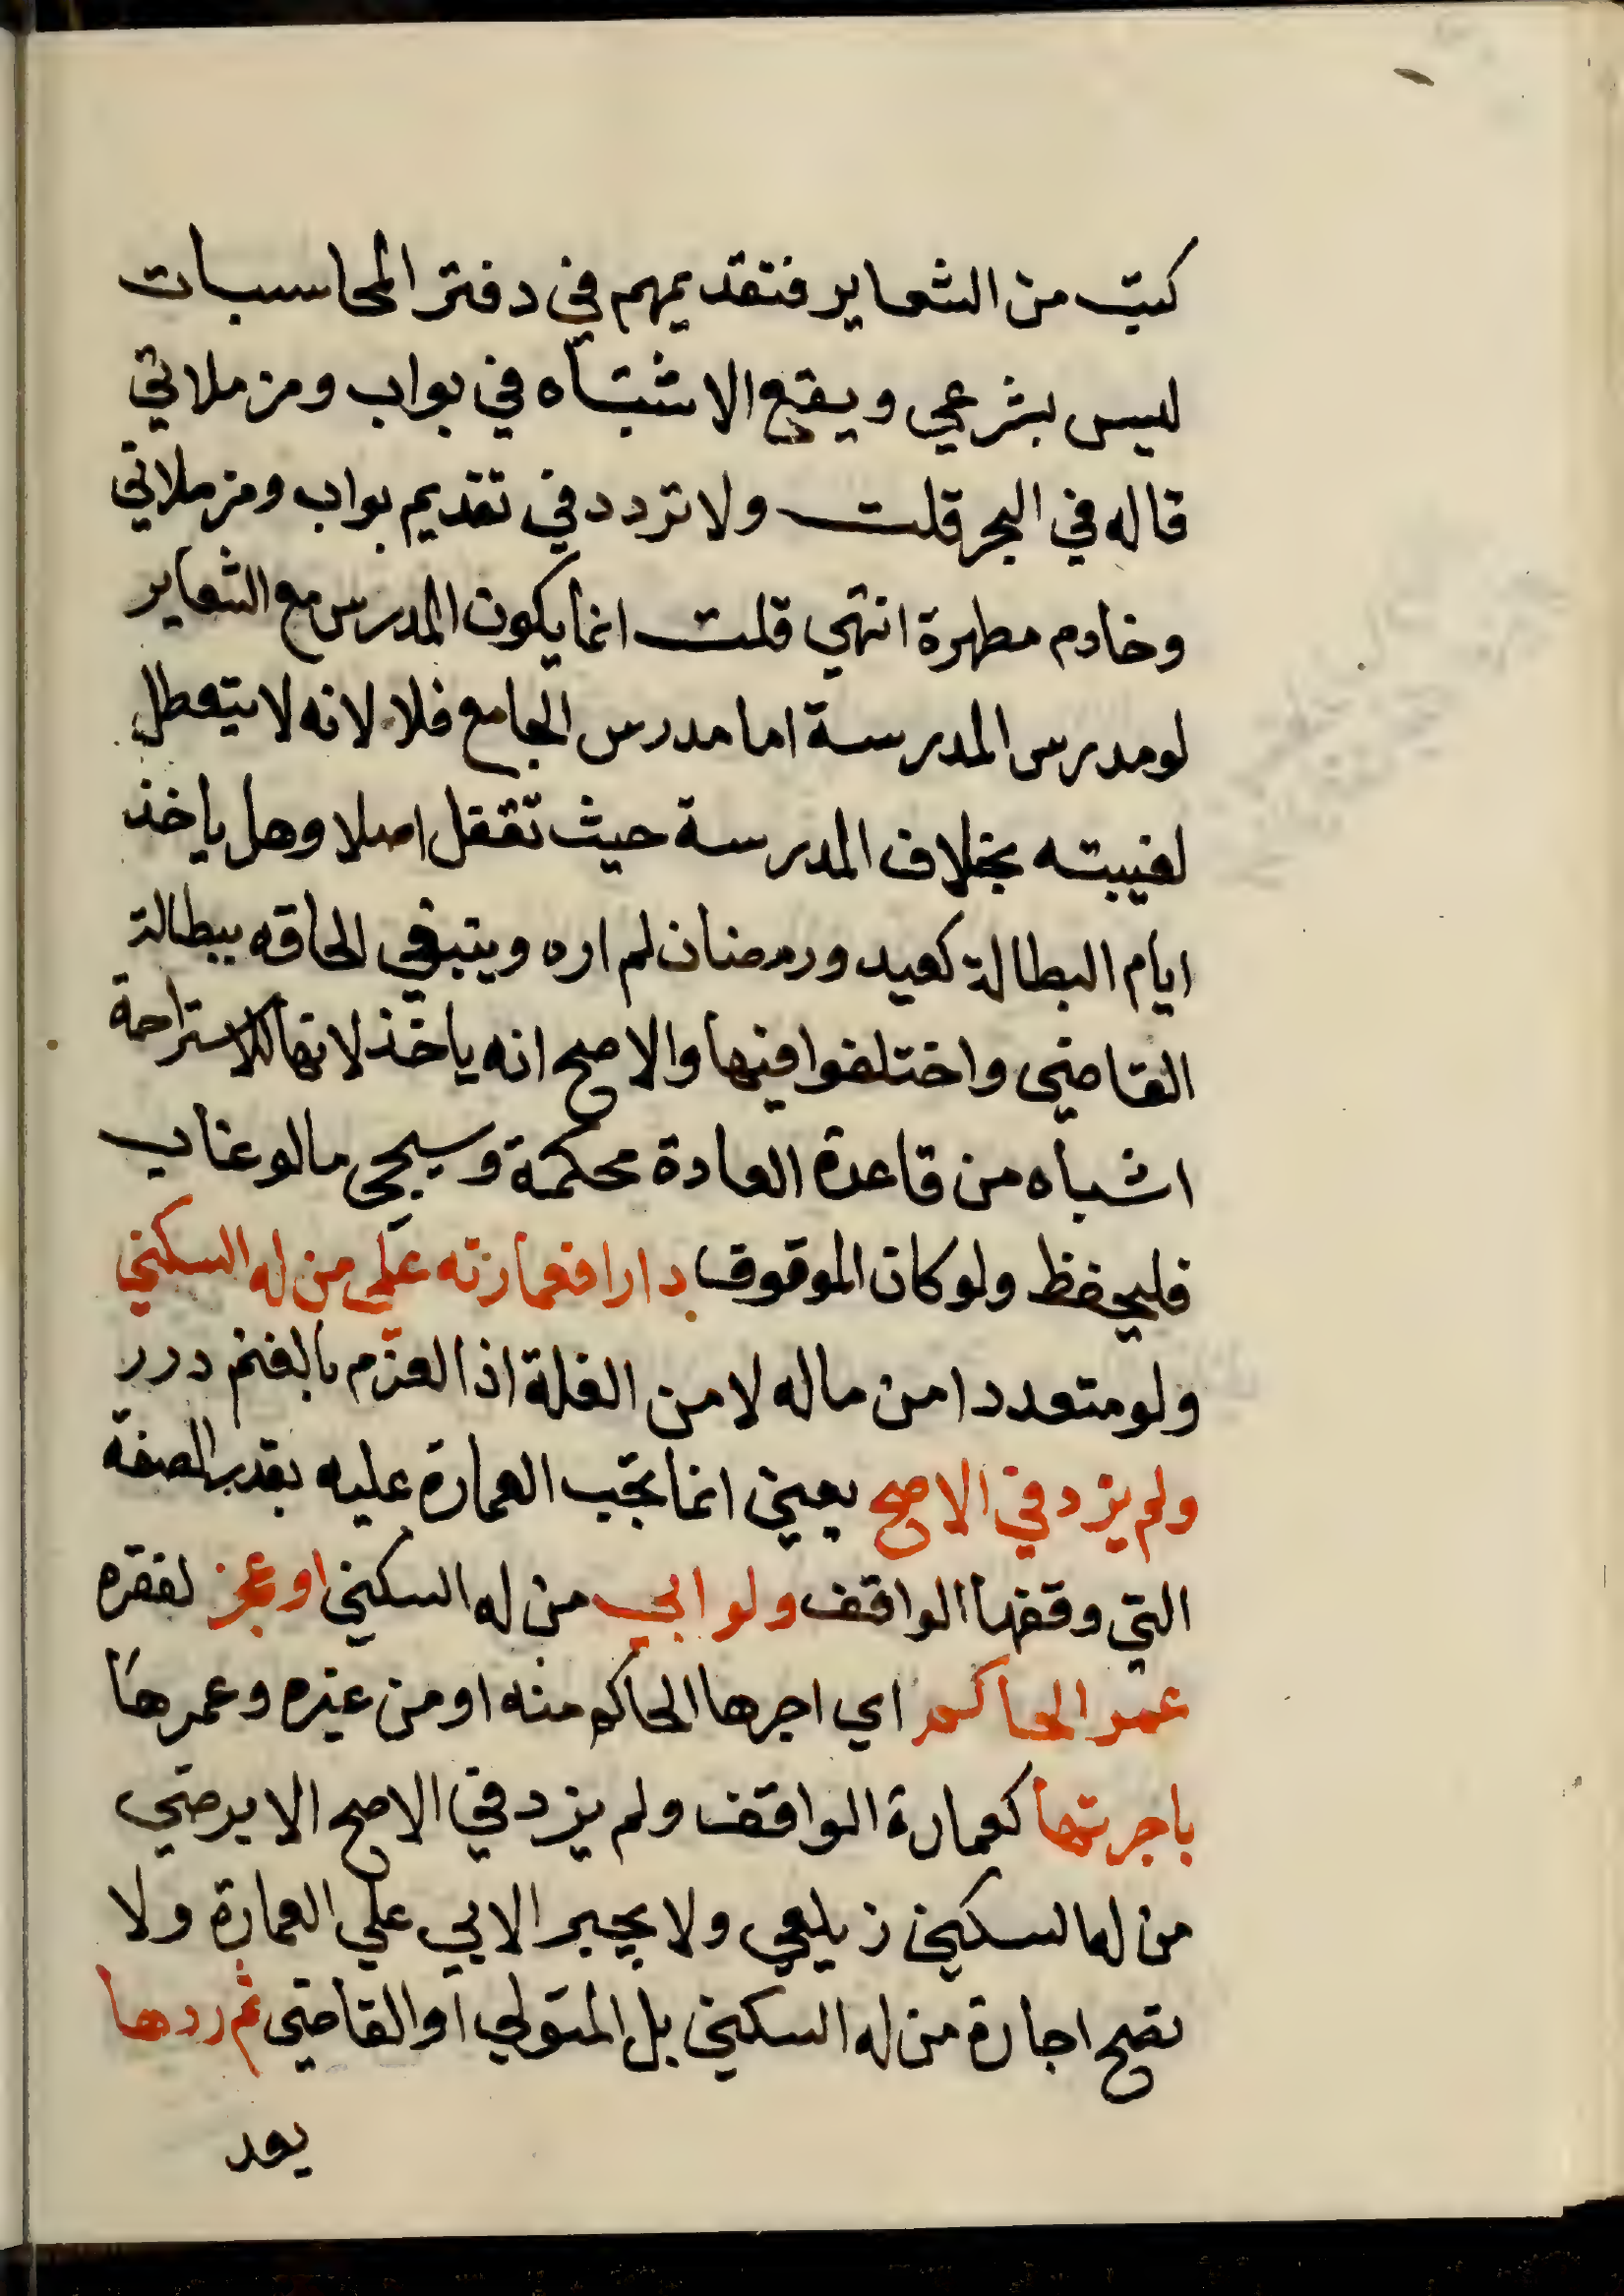 كتب من الشعاير فتقديمهم في دفتر المحاسبات
ليس بشرعي ويقع الاشتباه في بواب ومزملاتي
قاله في البحر قلت ولا تردد في تقديم بواب ومزملاتي
وخادم مطهرة انتهي قلت انما يكون المدرس مع الشعاير
لو مدرس المدرسة اما مدرس الجامع فلا لانه لا يتعطل
لغيبته بخلاف المدرسة حيث تقفل اصلا وهل ياخذ
ايام البطالة كعيد ورمضان لم اره وينبغي الحاقه ببطالة
القاضي واختلفوا فيها والاصح انه ياخذ لانها للاستراحة
اشباه من قاعدة العادة محكمة وسيجي مالو غاب
فليحفظ ولو كان الموقوف دارا فعمارته علي من له السكني
ولو متعددا من ماله لا من الغلة اذا الغرم بالغنم درر
ولم يزد في الاصح يعني انما تجب العمارة عليه بقدر الصفة
التي وقفها الواقف ولو ابي من له السكني او عجز لفقره
عمر الحاكم اي اجرها الحاكم منه او من غيره وعمرها
باجرتها كعمارة الواقف ولم يزد في الاصح الا برضي
من له السكني زيلعي ولا يجبر الابي علي العمارة ولا
تصح اجارة من له السكني بل المتولي او القاضي ثم ردها
بعد